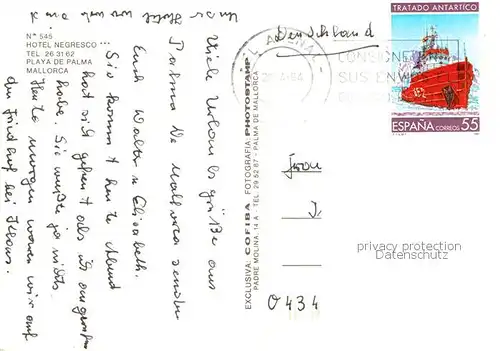 Nº 545
HOTEL NEGRESCO ***
TEL 26 31 62
PLAYA DE PALMA
MALLORCA
Viele Urlaubsgrüße aus
Palma de Mallorca senden
Euch Walter u. Elisabeth.
Sie kommt heute Abend
hat sich gefreut als ich angerufen
habe. Sie wußte ja nichts.
Heute morgen waren wir auf
den Friedhof bei Klaus.
EXCLUSIVA: COFIBA FOTOGRAFIA: PHOTOSTAMP
PADRE MOLINA, 14 A - TEL. 29 52 87 - PALMA DE MALLORCA
Deutschland
L'ARENAL
CONSIGNE EN
SUS ENVIOS
TRATADO ANTARTICO
ESPAÑA CORREOS 55
privacy protection
Datenschutz
0434